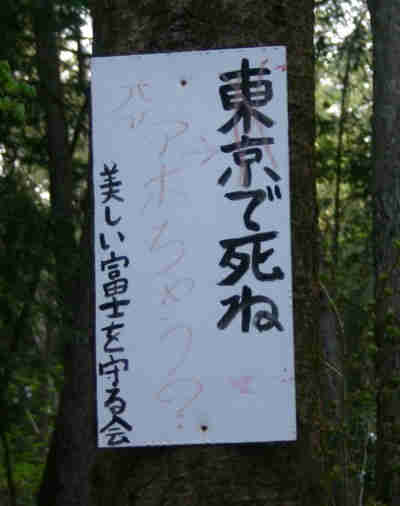 東京で死ね
アホちゃう?
美しい富士を守る会